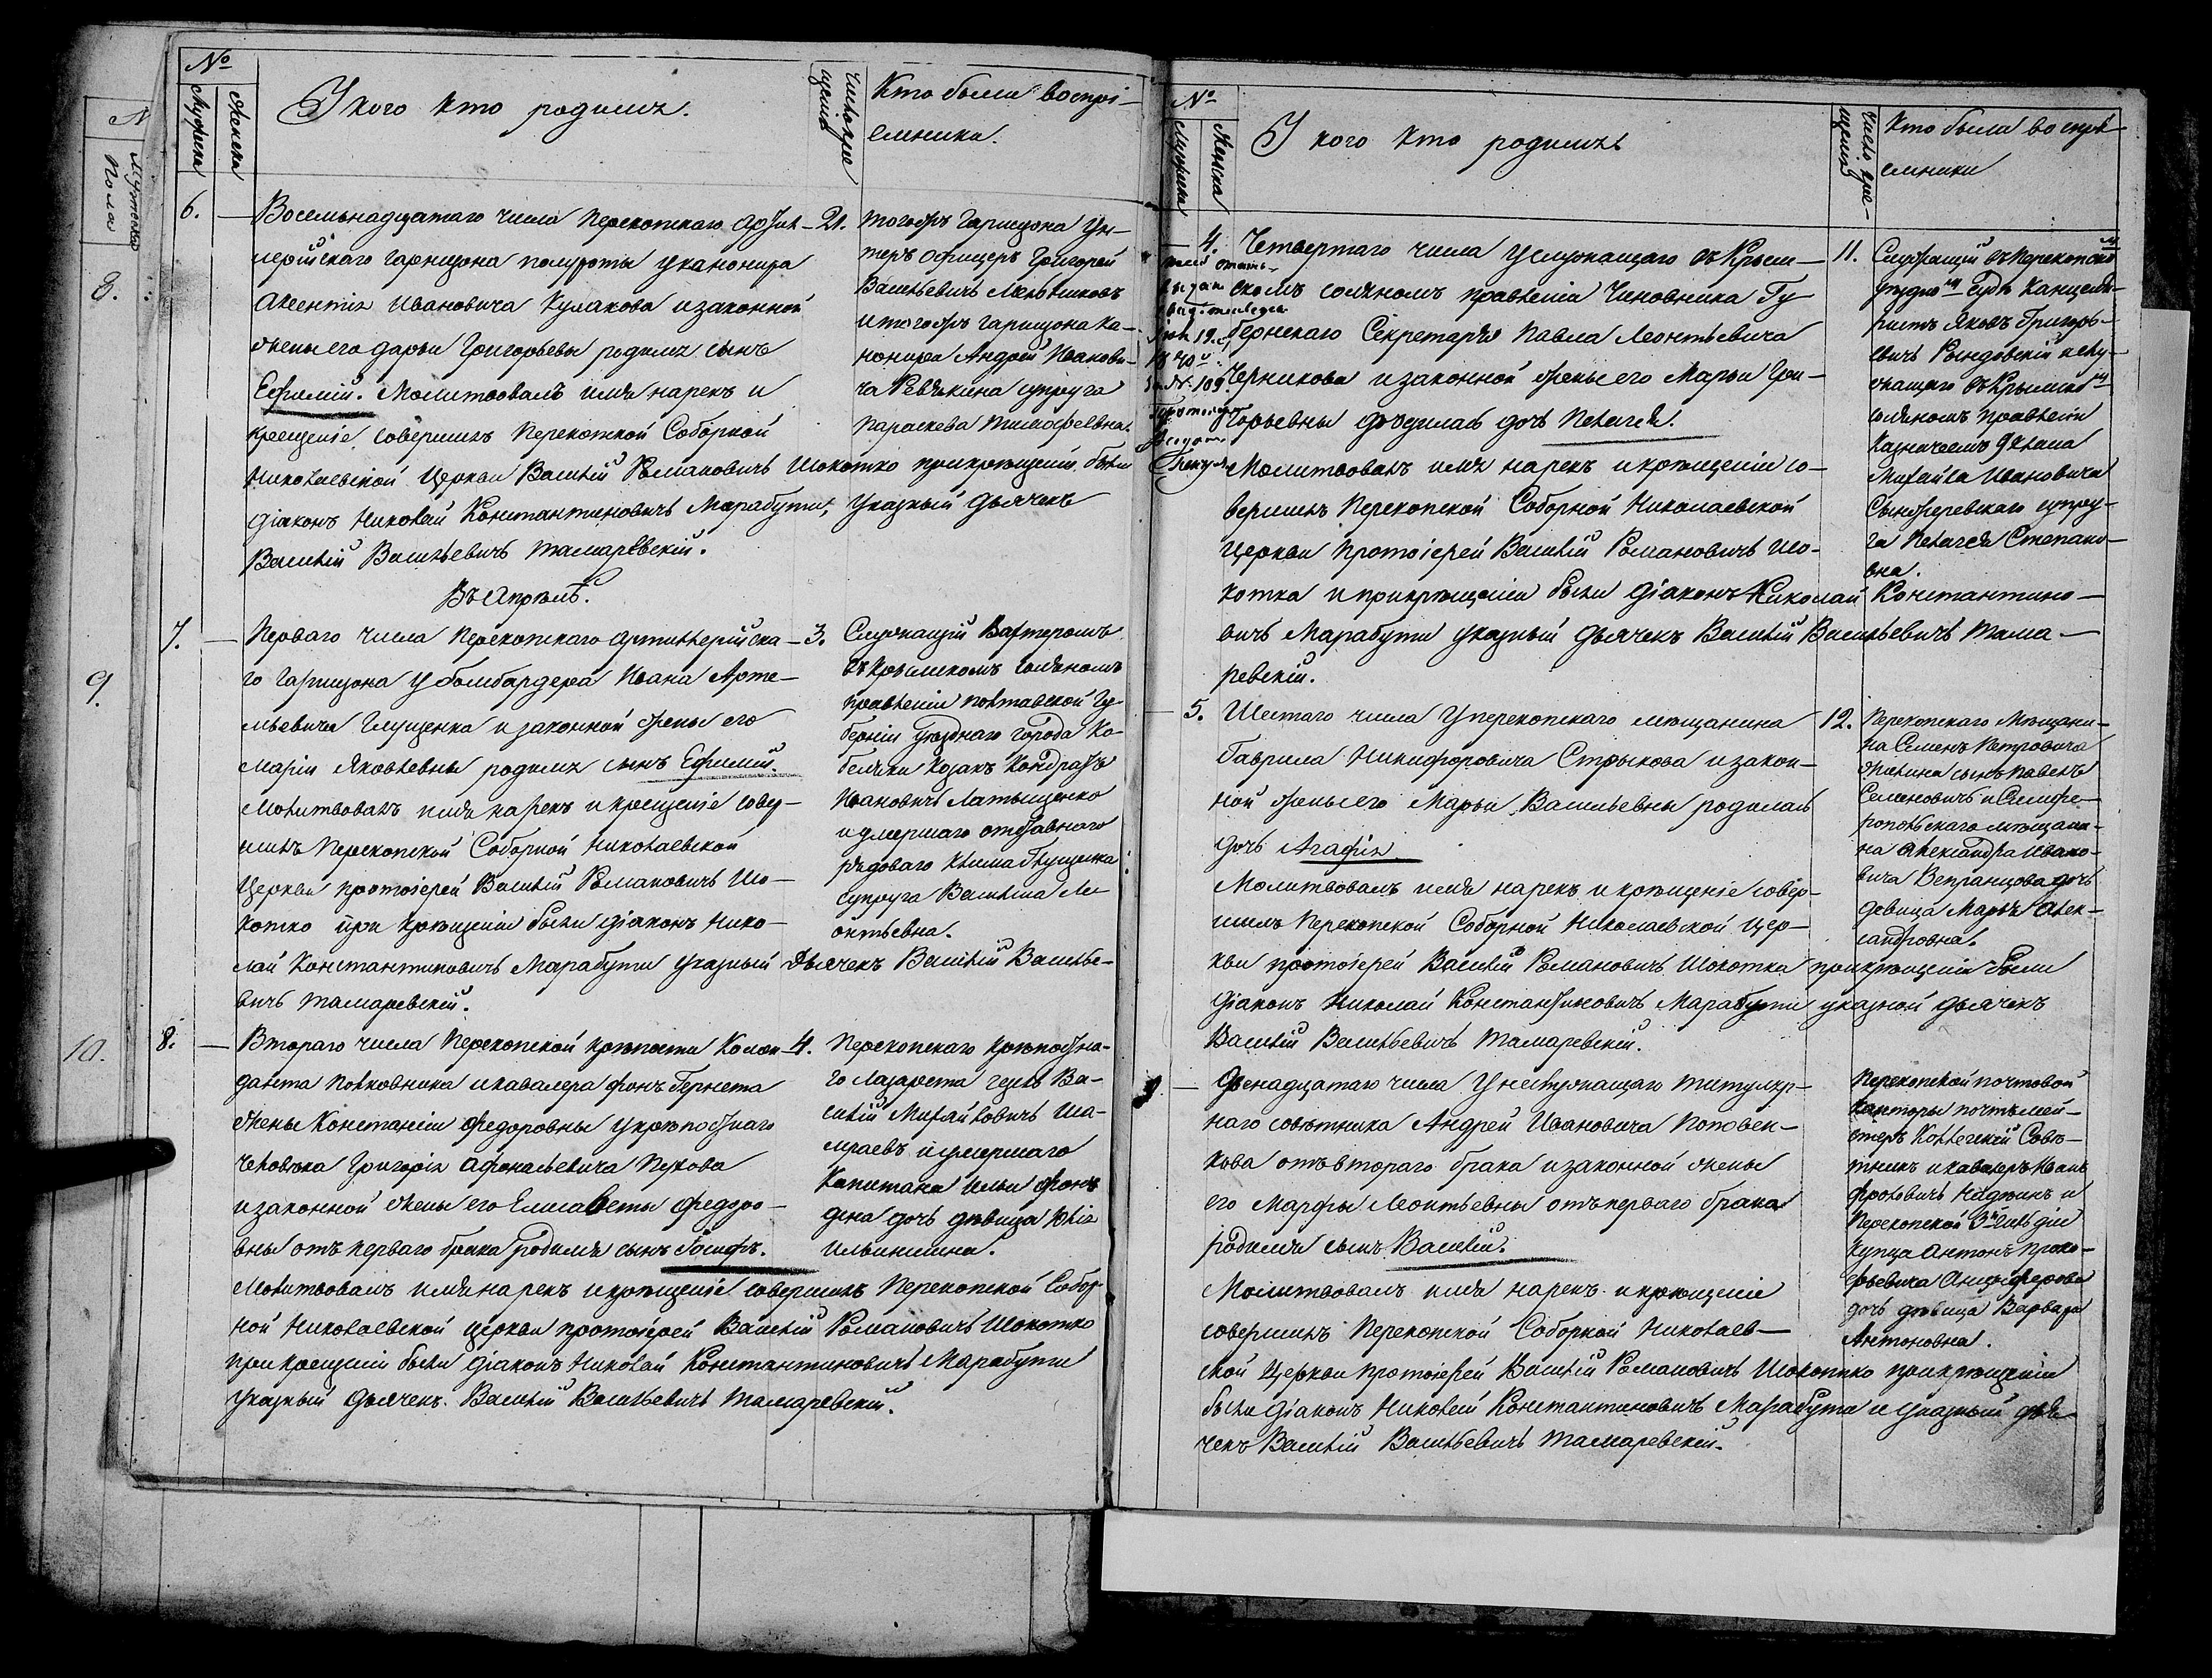 №
Мужеска
Женска
У кого кто родился.
Число кре
щенія
Кто были воспрі-
емники.
6.
Восемьнадцатаго числа Перекопскаго артил-
лерійскаго гарнизона полуроты у канонира
Авентія Ивановича Кулакова и законной
жены его Дарьи Григорьевы родился сынъ
Ефимій. Молитвовалъ имя нарекъ и
крещеніе совершилъ Перекопской Соборной
Николаевской Церкви Василій Романовичъ Шокотко при крещеніи были
діаконъ Николай Константиновичъ Марабути, указный дьячекъ
Василій Васильевичъ Тамаревскій.
21.
Тогожъ Гарнизона Ун-
теръ офицеръ Григорей
Васильевичъ Мельниковъ
и тогожъ гарнизона ка-
нонира Андрей Иванови-
ча Ревякина супруга
Параскева Тимофеевна.
Въ Апрѣлѣ.
7.
Перваго числа Перекопскаго артиллерійска-
го Гарнизона у бомбардера Ивана Арте-
мьевича Глущенка и законной жены его
Маріи Яковлевны родился сынъ Ефимій.
Молитвовалъ имя нарекъ и крещеніе совер-
шилъ Перекопской Соборной Николаевской
Церкви протоіерей Василій Романовичъ Шо-
котко при крещеніи были діаконъ Нико-
лай Константиновичъ Марабути указный Дьячекъ Василій Василье-
вичъ Тамаревскій.
3.
Служащій Вахтеромъ
въ Крымскомъ соляномъ
правленіи Полтавской Гу-
берніи уѣзднаго города Ко-
беляки Козакъ Кондратъ
Ивановичъ Латышенко
и умершаго отставнаго
рядоваго Клима Глущенка
супруга Василиса Ле-
онтьевна.
8.
Втораго числа Перекопской крѣпости Комен-
данта полковника и кавалера фонъ Гернета
жены Констанціи Федоровны у крѣпостнаго
человѣка Григорія Афонасьевича Пухова
и законной жены его Елисаветы Федоро-
вны отъ перваго брака родился сынъ Іосифъ.
Молитвовалъ имя нарекъ и крещеніе совершилъ Перекопской Собор
ной Николаевской церкви протоіерей Василій Романовичъ Шокотко
при крещеніи были діаконъ Николай Константиновичъ Марабути
указный дьячекъ Василій Васильевичъ Тамаревскій.
4.
Перекопскаго крѣпостна-
го Лазарета Ва-
силій Михайловичъ Ша-
мраевъ и умершаго
Капитана Ильи фонъ
дена дочь дѣвица Юлія
Ильинишна.
№
Мужеска
Женска
У кого кто родился
Число кре-
щенія
Кто были воспрі-
емники
4.
Четвертаго числа у служащаго въ Крым-
скомъ соляномъ правленіи Чиновника Гу-
бернскаго Секретаря Павла Леонтьевича
Черникова и законной жены его Марьи Гри-
горьевны родилась дочь Пелагея.
Молитвовалъ имя нарекъ и крещеніи со-
вершилъ Перекопской Соборной Николаевской
Церкви Протоіерей Василій Романовичъ Шо-
котка и при крещеніи были діаконъ Николай Константино-
вичъ Марабути указный дьячекъ Василій Васильевичъ Тама-
ревскій.
11.
Служащій въ Перекопском
уѣздном судѣ Канцеля-
ристъ Яковъ Григорь-
евичъ Рындовскій и слу-
жащаго въ Крымском
соляномъ правленіи
Казначеемъ
Михайла Ивановича
супру-
га Пелагея Степано-
вна.
5.
Шестаго числа у перекопскаго мѣщанина
Гаврила Никифоровича Стрыкова и закон-
ной жены его Марьи Васильевны родилась
дочь Агафія
Молитвовалъ имя нарекъ и крещеніе совер-
шилъ Перекопской Соборной Николаевской Цер-
кви протоіерей Василій Романовичъ Шокотка при крещеніи были
діаконъ Николай Константиновичъ Марабути указной дьячекъ
Василій Васильевичъ Тамаревскій.
12.
Перекопскаго Мѣщани-
на Семенъ Петровича
сынъ Павелъ
Семеновичъ и Симфе-
ропольскаго мѣщани-
на Александра Ивано-
вича Вепранцова дочь
девица Марья Алек-
сандровна.
Двенадцатаго числа у неслужащаго титуляр-
наго совѣтника Андрей Ивановича Поповен-
кова отъ втораго брака и законной жены
его Марфы Леонтьевны отъ перваго брака
родился сынъ Василій.
Молитвовалъ имя нарекъ и крещеніе
совершилъ Перекопской Соборной Николаев-
ской Церкви протоіерей Василій Романовичъ Шокотко при крещеніи
были діаконъ Николай Константиновичъ Марабути и указный дья-
чекъ Василій Васильевичъ Тамаревскій.
Перекопской почтовой
канторы почтъмей-
стеръ Коллегскій Совѣ-
тникъ и кавалеръ Иванъ
Фроловичъ и
Перекопской 3й гильдіи
Купца Антонъ Проко-
фьевича Анцыферова
дочь дѣвица Варвара
Антоновна.
№
Мужеска
Пола
8.
9.
10.